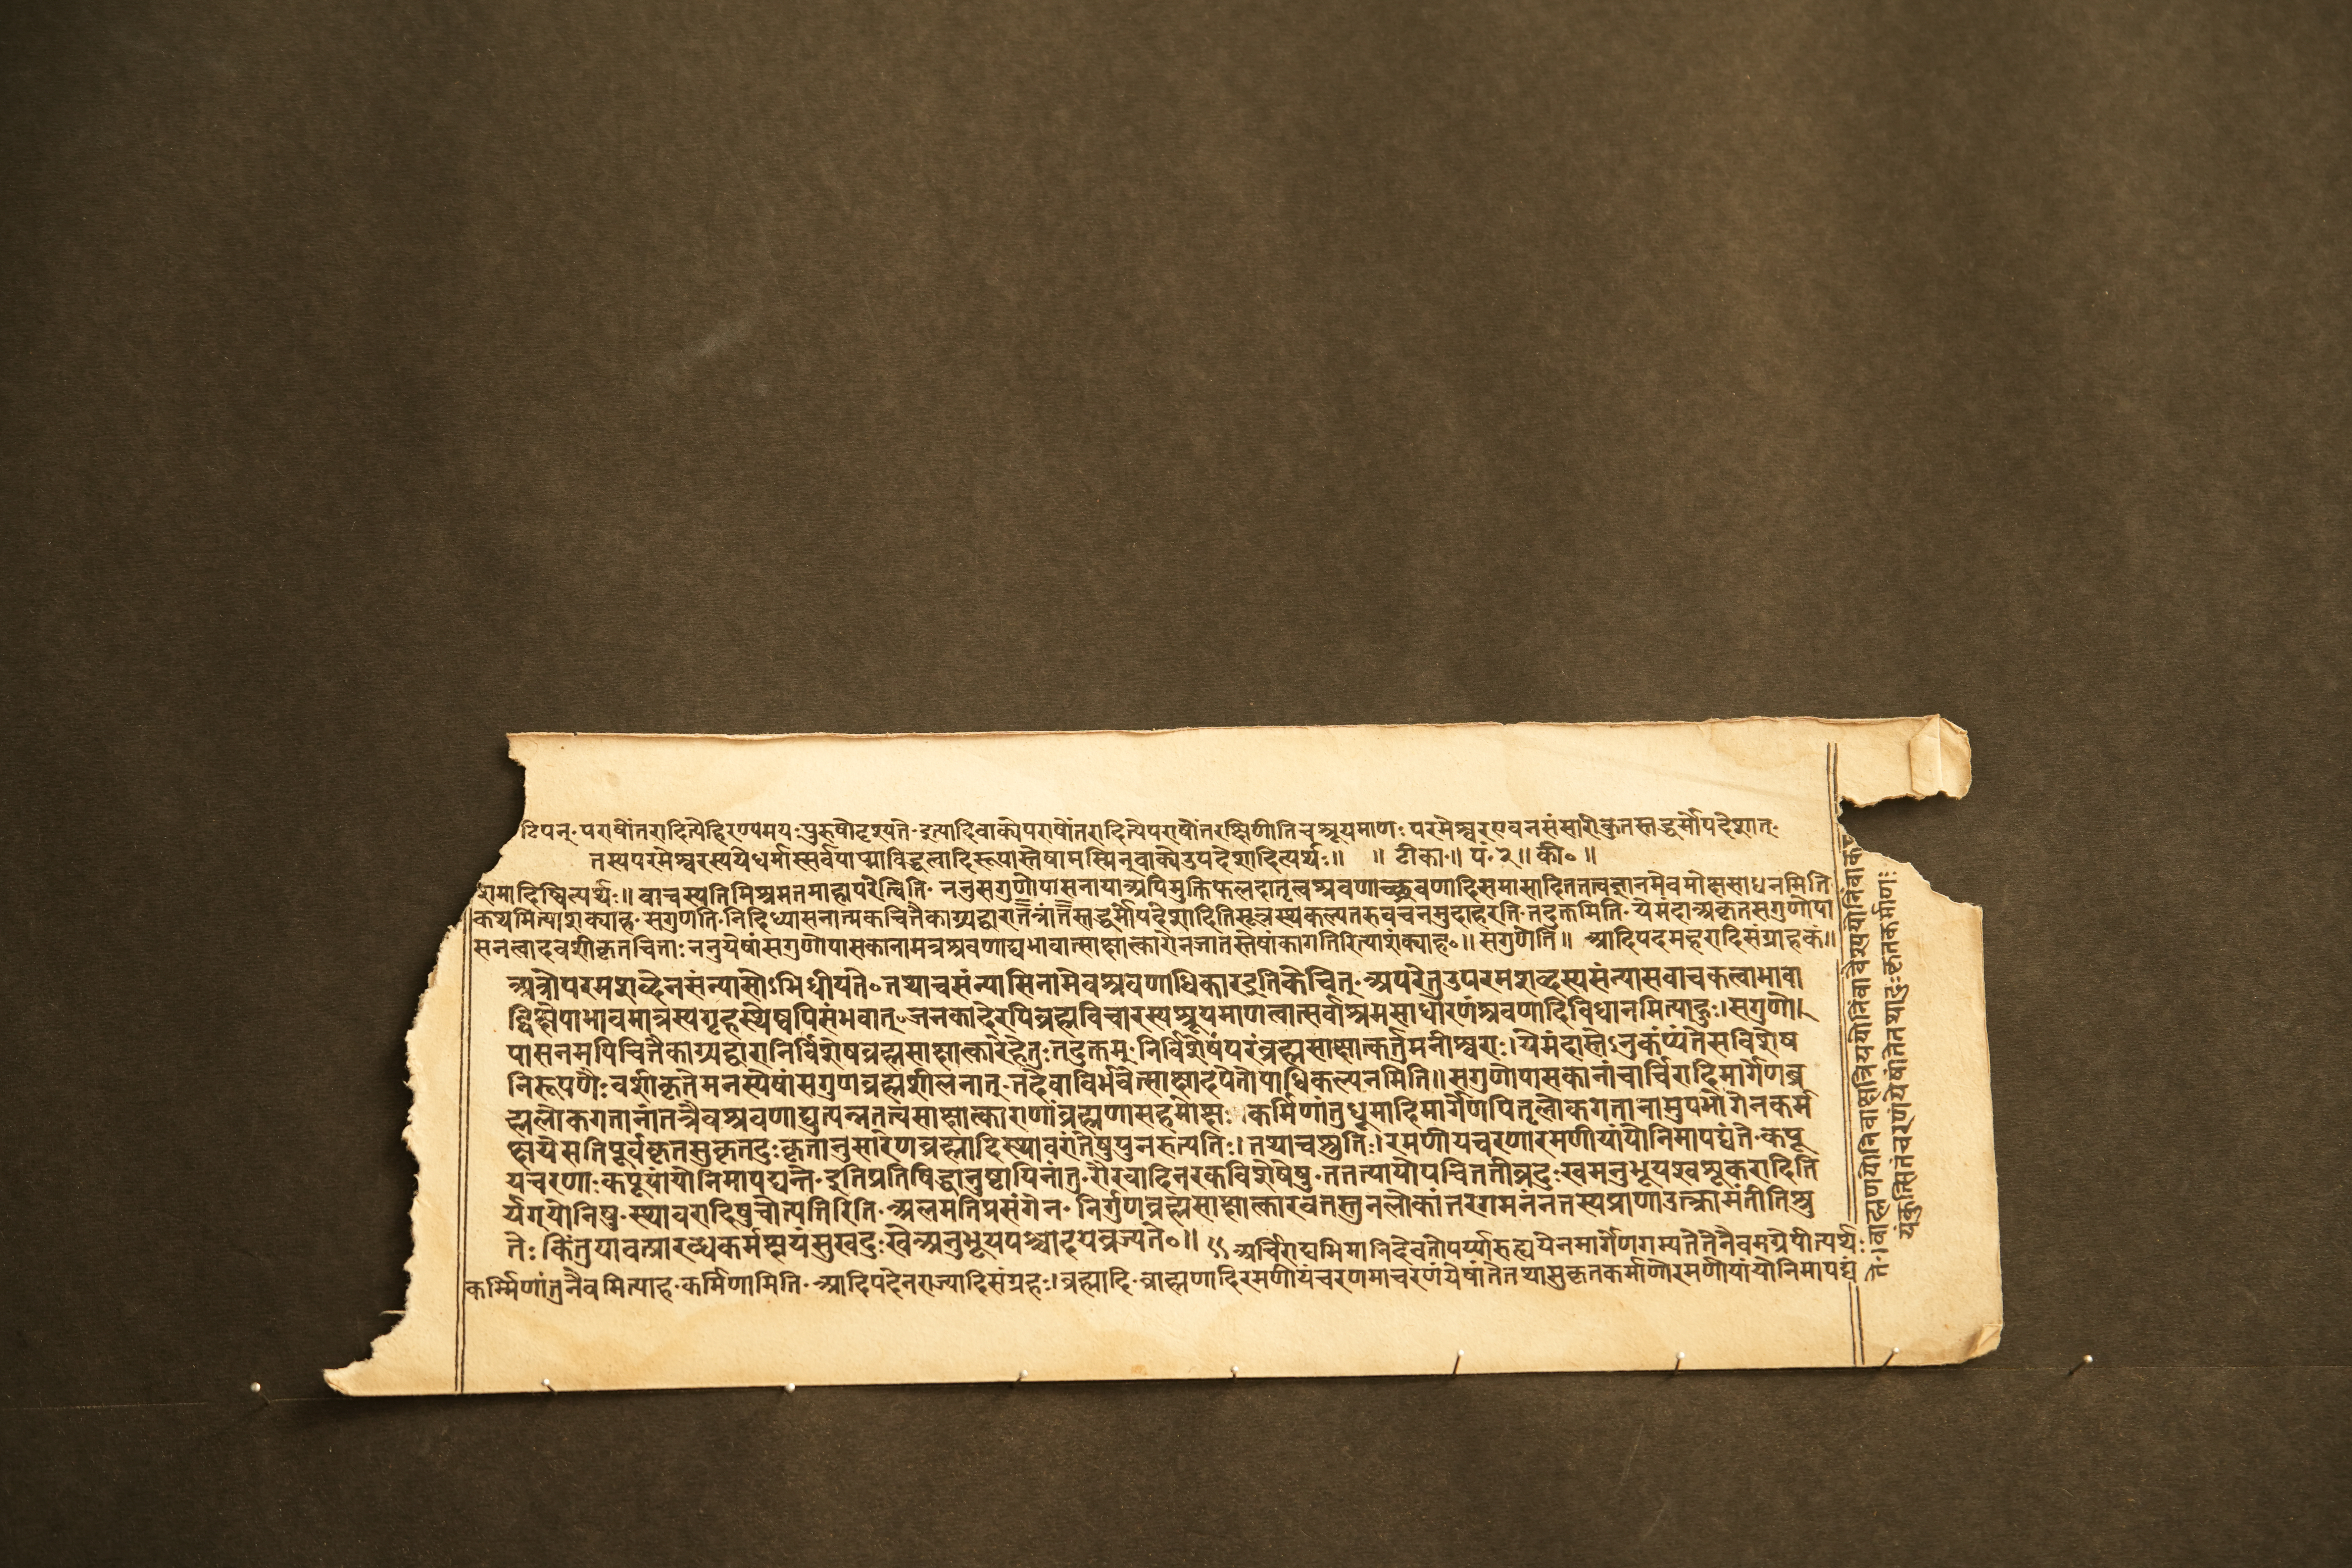 टिपन्·पराषोंतरादित्येहिरण्यमयःपुरुषोदृश्यते·इत्यादिवाक्येपराषोंतरादित्येपराषोंतरक्षिणीतिचश्रूयमाणः परमेश्वरएवनसंसारीकुतस्तद्धर्मोपदेशात्·
तस्यपरमेश्वरस्ययेधर्मास्सर्वपाप्माविद्धत्वादिरूपास्तेषामस्मिन्वाक्येउपदेशादित्यर्थः॥ ॥ टीका॥ पं·२॥ की॰ ॥
शमादिष्वित्यर्थः॥ वाचस्पतिमिश्रमतमाहापरेत्विति· ननुसगुणोपासनायाअपिमुक्तिफलदातृत्व श्रवणादिसमासादिततत्वज्ञानमेवमोक्षसाधनमिति
कथमित्याशंक्याह·सगुणेति·निदिध्यासनात्मकचितैकाग्र्यद्वारा तद्धर्मोपदेशादितिसूत्रस्थकल्पतरुवचनमुदाहरति·तदुक्तमिति·येमंदाअकृतसगुणोपा
सनत्वादवशीकृतचिताःननुयेषांसगुणोपासकानामत्रश्रवणाद्यभावात्साक्षात्कारोनजातस्तेषांकागतिरित्याशंक्याह॰॥सगुणेति॥ आदिपदमहरादिसंग्राहकं॥
अत्रोपरमशब्देनसंन्यासोऽभिधीयते॰तथाचसंन्यासिनामेवश्रवणाधिकारइतिकेचित्·अपरेतुउपरमशब्दस्यसंन्यासवाचकत्वाभावा
द्विक्षेपाभावमात्रस्यगृहस्थेष्वपिसंभवात्॰जनकादेरपिब्रह्मविचारस्यश्रूयमाणत्वात्सर्वाश्रमसाधारणंश्रवणादिविधानमित्याहुः।सगुणो
पासनमपिचितैकाग्र्यद्वारानिर्विशेषब्रह्मसाक्षात्कारेहेतुःतदुक्तम्·निर्विशेषंपरंब्रह्मसाक्षात्कर्तुमनीश्वराः।येमंदास्तेऽनुकंप्यंतेसविशेष
निरूपणैःवशीकृतेमनस्येषांसगुणब्रह्मशीलनात्·तदेवाविर्भवेत्साक्षादपेतोपाधिकल्पनमिति॥सगुणोपासकानांचार्चिरादिमार्गेणब्र
ह्मलोकगतानांतत्रैवश्रवणाद्युत्पन्नतत्त्वसाक्षात्काराणांब्रह्मणासहमोक्षः।कर्मिणांतुधूमादिमार्गेणपितृलोकगतानामुपभोगेनकर्म
क्षयेसतिपूर्वकृतसुकृतदुःकृतानुसारेणब्रह्मादिस्थावरांतेषुपुनरुत्पतिः।तथाचश्रुतिः।रमणीयचरणारमणीयांयोनिमापद्यंते·कपू
यचरणाःकपूयांयोनिमापद्यन्ते·इतिप्रतिषिद्धानुष्ठायिनांतु·रौरवादिनरकविशेषेषु·तत्तत्पापोपचिततीव्रदुःखमनुभूयश्वशूकरादिति
र्यग्योनिषु·स्थावरादिषुचोत्पतिरिति·अलमतिप्रसंगेन· निर्गुणब्रह्मसाक्षात्कारवतस्तुनलोकांतरगमनंनतस्यप्राणाउत्क्रामंतीतिश्रु
तेः किंतुयावत्प्रारब्धकर्मक्षयंसुखदुःखेअनुभूयपश्चादपवृज्यते॰॥ ९९ अर्चिराद्यभिमानिदेवतोपर्य्यारुह्ययेनमार्गेणगम्यतेतेनैवमग्रेपीत्यर्थः
कर्म्मिणांतुनैवमित्याह·कर्मिणामिति·आदिपदेनराज्यादिसंग्रहः।ब्रह्मादि·ब्राह्मणादिरमणीयंचरणमाचरणंयेषांतेतथासुकृतकर्माणोरमणीयांयोनिमापद्यं
तेः।ब्राह्मणयोनिंवाक्षत्रिययोनिंवावैश्ययोनिंवाक
यंकुत्सितंचरणंयेषांतेतथादुःकृतकर्माणः